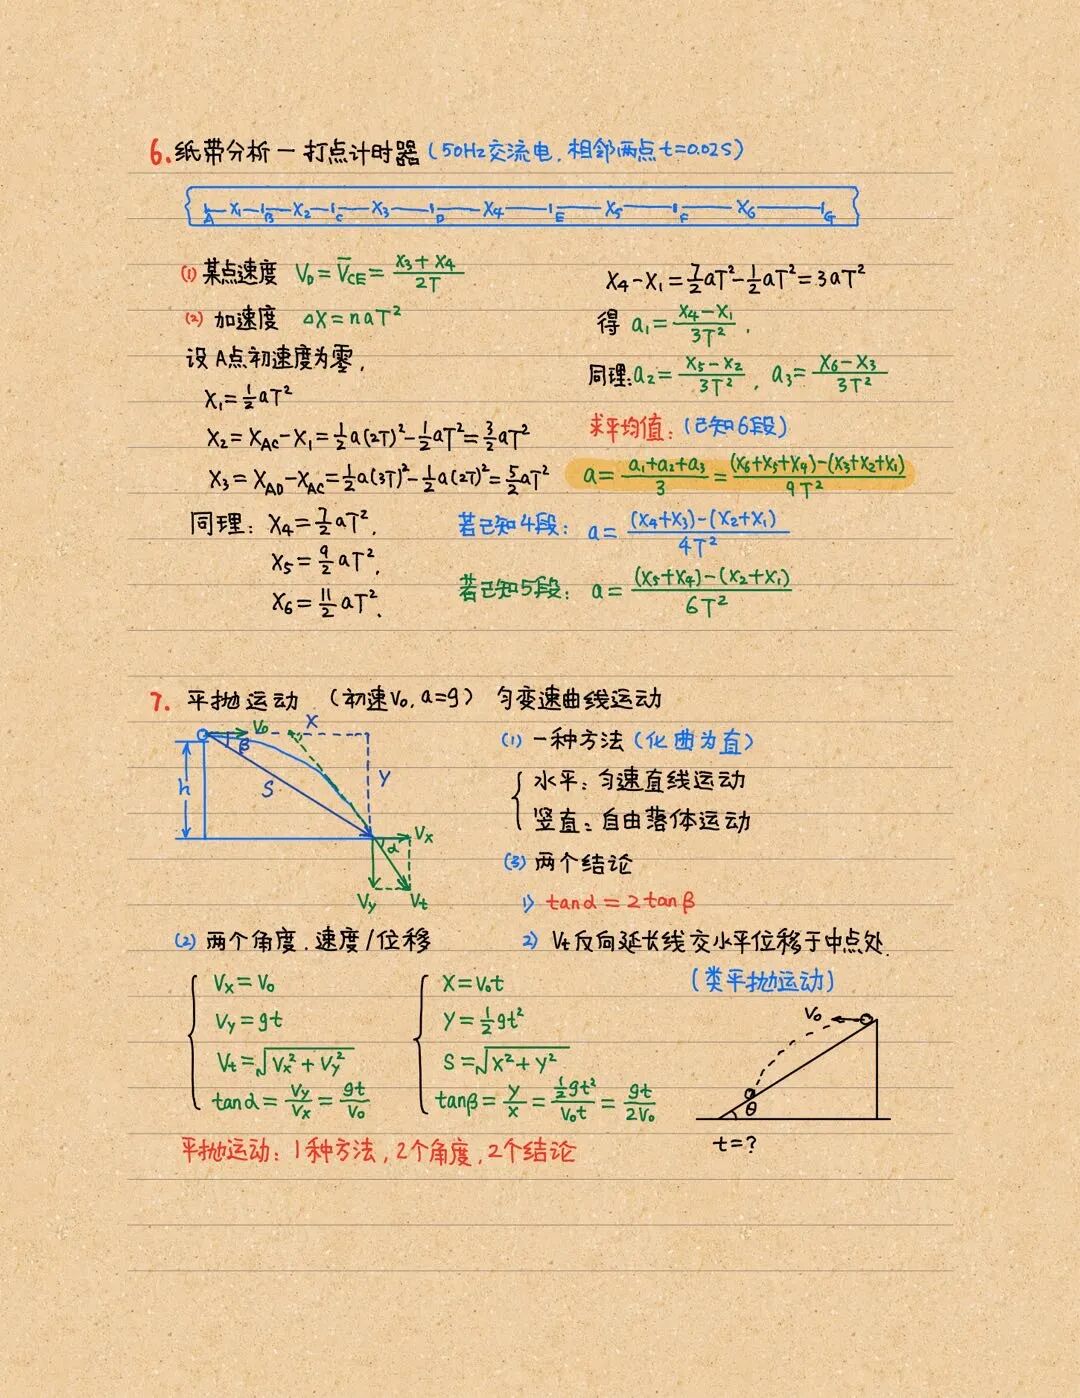 6. 纸带分析 — 打点计时器 (50Hz交流电, 相邻两点 t=0.02S)
A X₁ B X₂ C X₃ D X₄ E X₅ F X₆ G
(1) 某点速度 V_D = V̄_CE = (X₃+X₄)/2T
(2) 加速度 △X = naT²
设 A点初速度为零,
X₁ = ½aT²
X₂ = X_AC - X₁ = ½a(2T)² - ½aT² = 3/2 aT²
X₃ = X_AD - X_AC = ½a(3T)² - ½a(2T)² = 5/2 aT²
同理: X₄ = 7/2 aT²,
X₅ = 9/2 aT²,
X₆ = 11/2 aT².
X₄ - X₁ = 7/2 aT² - ½aT² = 3aT²
得 a₁ = (X₄-X₁)/3T² ,
同理: a₂ = (X₅-X₂)/3T² , a₃ = (X₆-X₃)/3T²
求平均值: (已知6段)
a = (a₁+a₂+a₃)/3 = ((X₆+X₅+X₄)-(X₃+X₂+X₁))/9T²
若已知4段: a = ((X₄+X₃)-(X₂+X₁))/4T²
若已知5段: a = ((X₅+X₄)-(X₂+X₁))/6T²
7. 平抛运动 (初速V₀, a=g) 匀变速曲线运动
V₀ X
β
h S Y
α Vx
Vy Vt
(1) 一种方法 (化曲为直)
水平: 匀速直线运动
竖直: 自由落体运动
(3) 两个结论
1) tanα = 2tanβ
2) Vt反向延长线交水平位移于中点处.
(2) 两个角度. 速度/位移
Vx = V₀
Vy = gt
Vt = √(Vx²+Vy²)
tanα = Vy/Vx = gt/V₀
X = V₀t
Y = ½gt²
S = √(X²+Y²)
tanβ = Y/X = ½gt²/V₀t = gt/2V₀
(类平抛运动)
V₀
θ
t=?
平抛运动: 1种方法, 2个角度, 2个结论